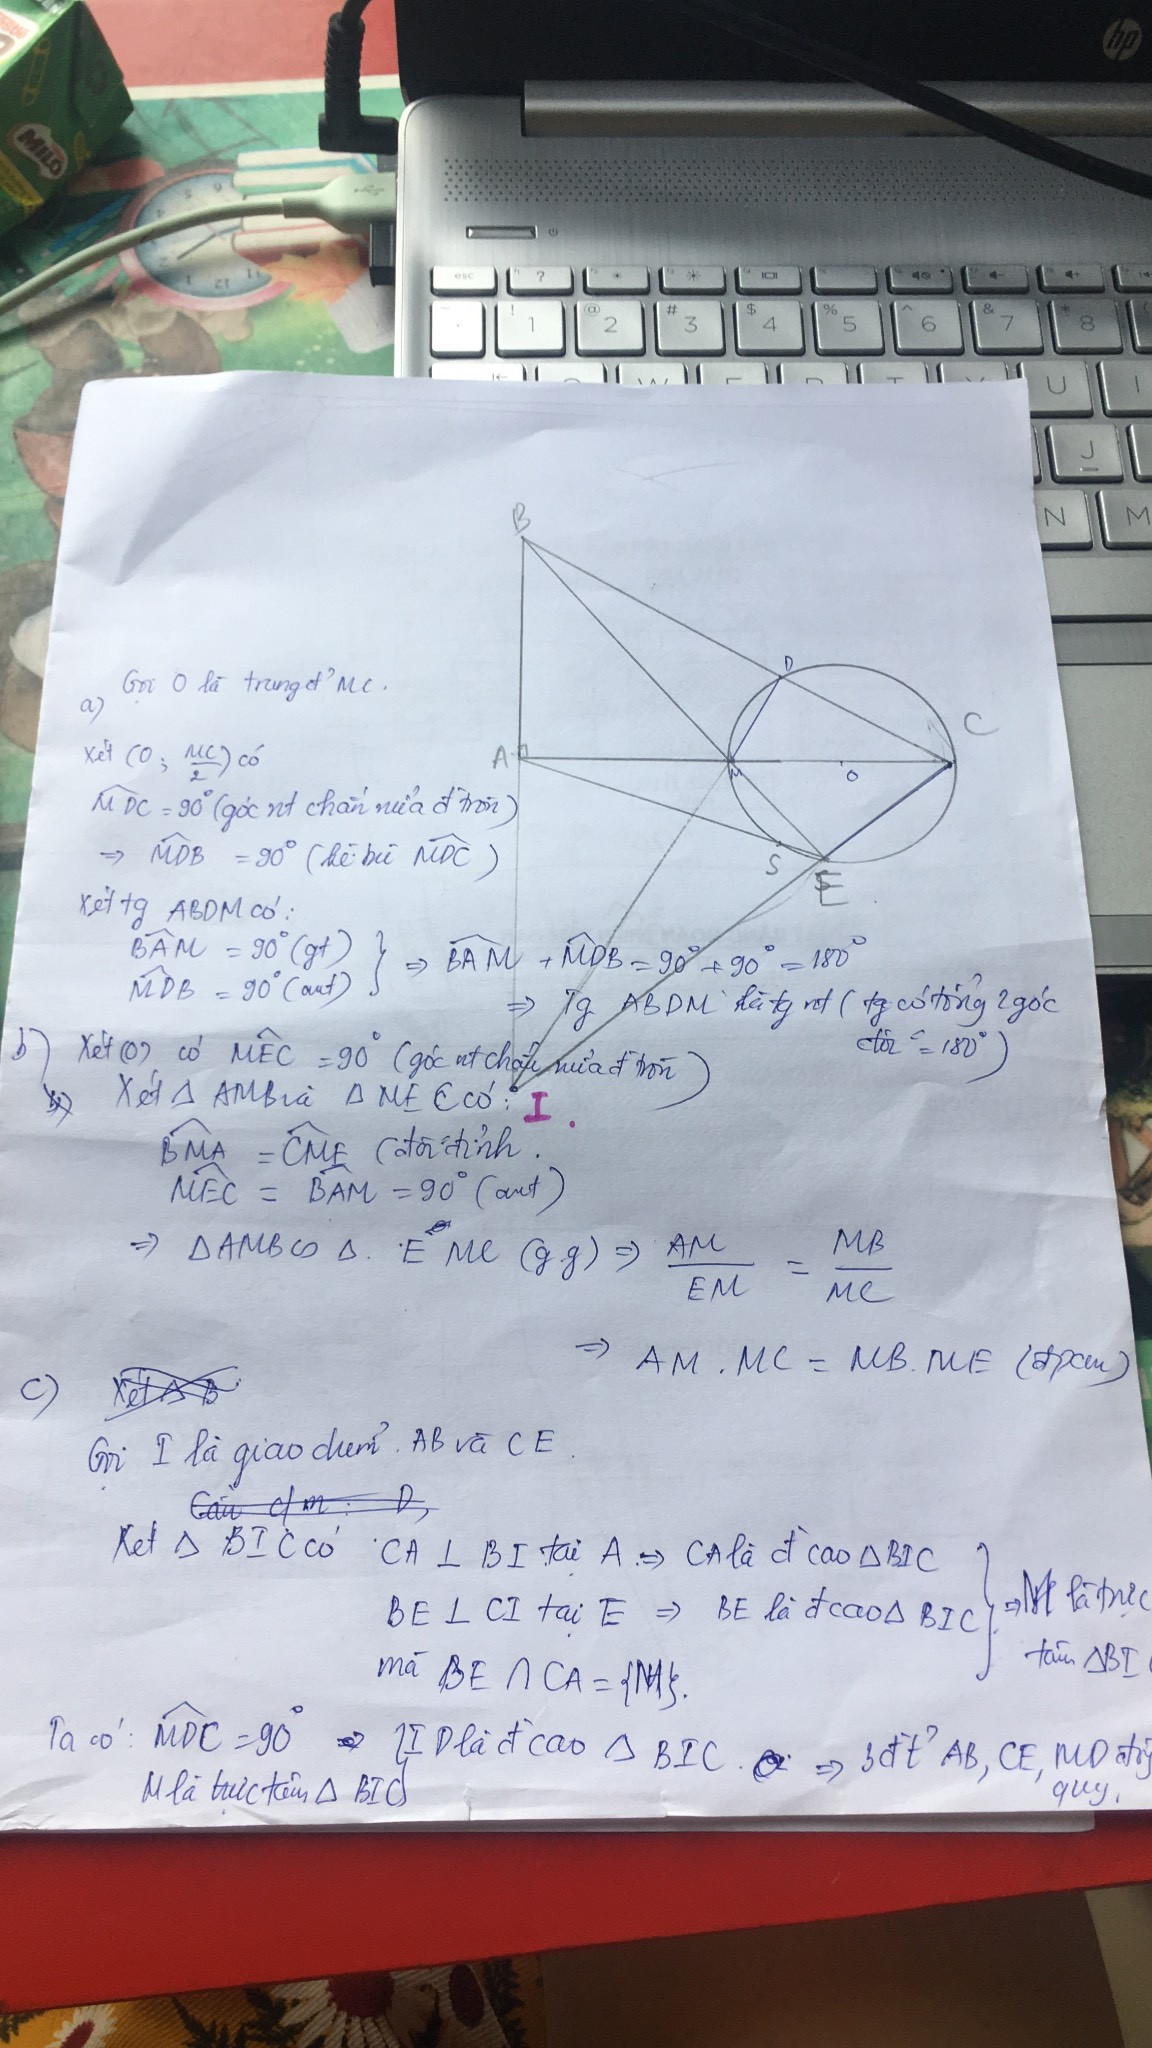 MILO
hp
esc
?
! 1
@ 2
# 3
$ 4
% 5
^ 6
& 7
* 8
U
I
J
N
M
B
D
C
A
M
O
S
E
I.
a) Gọi O là trung đ' MC.
Xét (O; MC/2) có
MDC = 90° (góc nt chắn nửa đ tròn)
=> MDB = 90° (kề bù MDC)
Xét tg ABDM có:
BAM = 90° (gt)
MDB = 90° (cmt)
} => BAM + MDB = 90° + 90° = 180°
=> Tg ABDM là tg nt (tg có tổng 2 góc
đối = 180°)
b) Xét (O) có MEC = 90° (góc nt chắn nửa đ tròn)
Xét Δ AMB và Δ MEC có:
BMA = CME (đối đỉnh.
MEC = BAM = 90° (cmt)
=> Δ AMB ∽ Δ. EMC (g.g) => AM/EM = MB/MC
=> AM . MC = MB. ME (đpcm)
c) Xét Δ B
Gọi I là giao điểm. AB và CE.
Cần c/m: D,
Xét Δ BIC có CA ⊥ BI tại A => CA là đ cao Δ BIC
BE ⊥ CI tại E => BE là đ cao Δ BIC
mà BE ∩ CA = {M}.
} => M là trực
tâm ΔBI
Ta có: MDC = 90°
M là trực tâm Δ BIC
} => ID là đ cao Δ BIC. => 3 đt' AB, CE, MD đồ
quy.